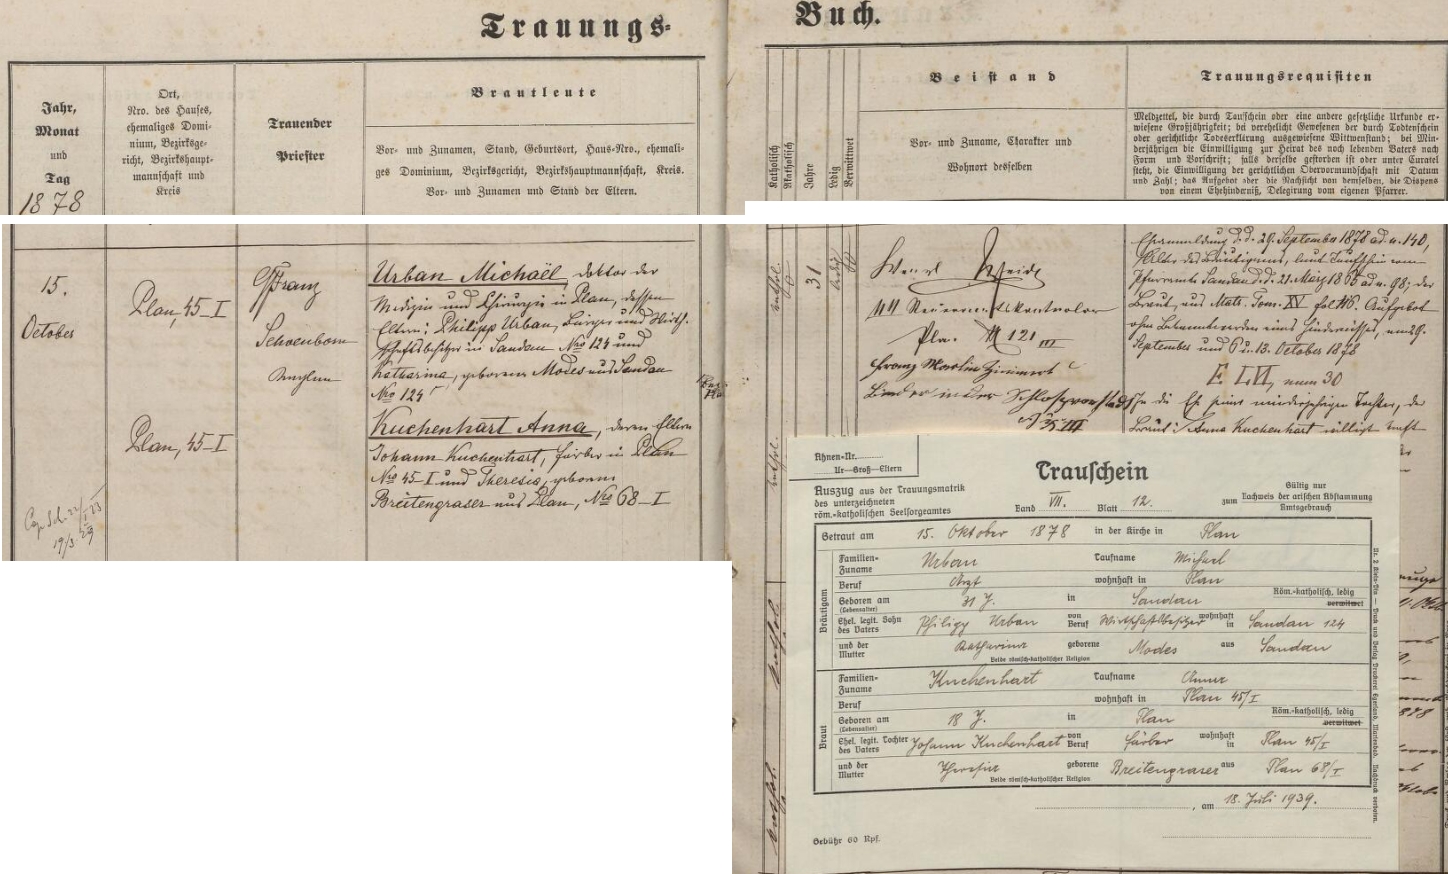 Trauungs-
Buch.
Jahr,
Monat
und
Tag
1878
Ort,
Nro. des Hauses,
ehemaliges Domi-
nium, Bezirksge-
richt, Bezirkshaupt-
mannschaft und
Kreis
Trauender
Priester
Brautleute
Vor- und Zunamen, Stand, Geburtsort, Haus-Nro., ehemali-
ges Dominium, Bezirksgericht, Bezirkshauptmannschaft, Kreis.
Vor- und Zunamen und Stand der Eltern.
Katholisch
Akatholisch
Jahre
Ledig
Verwittwet
Beistand
Vor- und Zuname, Charakter und
Wohnort desselben
Trauungsrequisiten
Meldzettel, die durch Taufschein oder eine andere gesetzliche Urkunde er-
wiesene Großjährigkeit; bei verehelicht Gewesenen der durch Todtenschein
oder gerichtliche Todeserklärung ausgewiesene Wittwenstand; bei Min-
derjährigen die Einwilligung zur Heirat des noch lebenden Vaters nach
Form und Vorschrift; falls derselbe gestorben ist oder unter Curatel
steht, die Einwilligung der gerichtlichen Obervormundschaft mit Datum
und Zahl; das Aufgebot oder die Nachsicht von demselben, die Dispens
von einem Ehehinderniß, Delegirung vom eigenen Pfarrer.
15.
October
Plan, 45-I
Franz
Schoenborn
Urban Michaël, doktor der
Medizin und Chirurgie in Plan, dessen
Eltern: Philipp Urban, Bürger und Wirth-
schaftsbesitzer in Sandau Nro 124 und
Katharina, geborene Modes aus Sandau
Nro 125
Plan, 45-I
Kuchenhart Anna, deren Eltern
Johann Kuchenhart, färber in Plan
Nro 45-I und Theresia, geborene
Breitengraser aus Plan, Nro 68-I
kathol.
31
ledig
Plan. N 121 III
Franz Martin Zimmert
in der Schlossvorstadt
N 35 III
Ehe­anmeldung d.d. 29. September 1878 ad. n. 140,
Alter des Bräutigams, laut Taufschein vom
Pfarramte Sandau d.d. 21. März 1866 ad n. 98; der
Braut, aus Matr. Tom. XV fol. 116. Aufgebot
ohne Bekanntwerden eines Hindernisses, am 29.
September und 6 u. 13. October 1878
E. LVI, num 30
In die Ehe seiner minderjährigen Tochter, der
Braut: Anna Kuchenhart willigt
Ahnen-Nr.
Ur-Groß-Eltern
Trauschein
Auszug aus der Trauungsmatrik
des unterzeichneten
röm.-katholischen Seelsorgeamtes
Band VII. Blatt 12.
Gültig nur
zum Nachweis der arischen Abstammung
Amtsgebrauch
Getraut am 15. Oktober 1878 in der Kirche in Plan
Bräutigam
Familien-Zuname Urban Taufname Michael
Beruf Arzt wohnhaft in Plan
Geboren am (Lebensalter) 31 J. in Sandau Röm.-katholisch, ledig verwitwet
Ehel. legit. Sohn des Vaters Philipp Urban von Beruf Wirtschaftsbesitzer wohnhaft in Sandau 124
und der Mutter Katharina geborene Modes aus Sandau
Beide römisch-katholischer Religion
Braut
Familien-Zuname Kuchenhart Taufname Anna
Beruf wohnhaft in Plan 45/I
Geboren am (Lebensalter) 18 J. in Plan Röm.-katholisch, ledig verwitwet
Ehel. legit. Tochter des Vaters Johann Kuchenhart von Beruf färber wohnhaft in Plan 45/I
und der Mutter Theresia geborene Breitengraser aus Plan 68/I
Beide römisch-katholischer Religion
, am 18. Juli 1939.
Gebühr 60 Rpf.